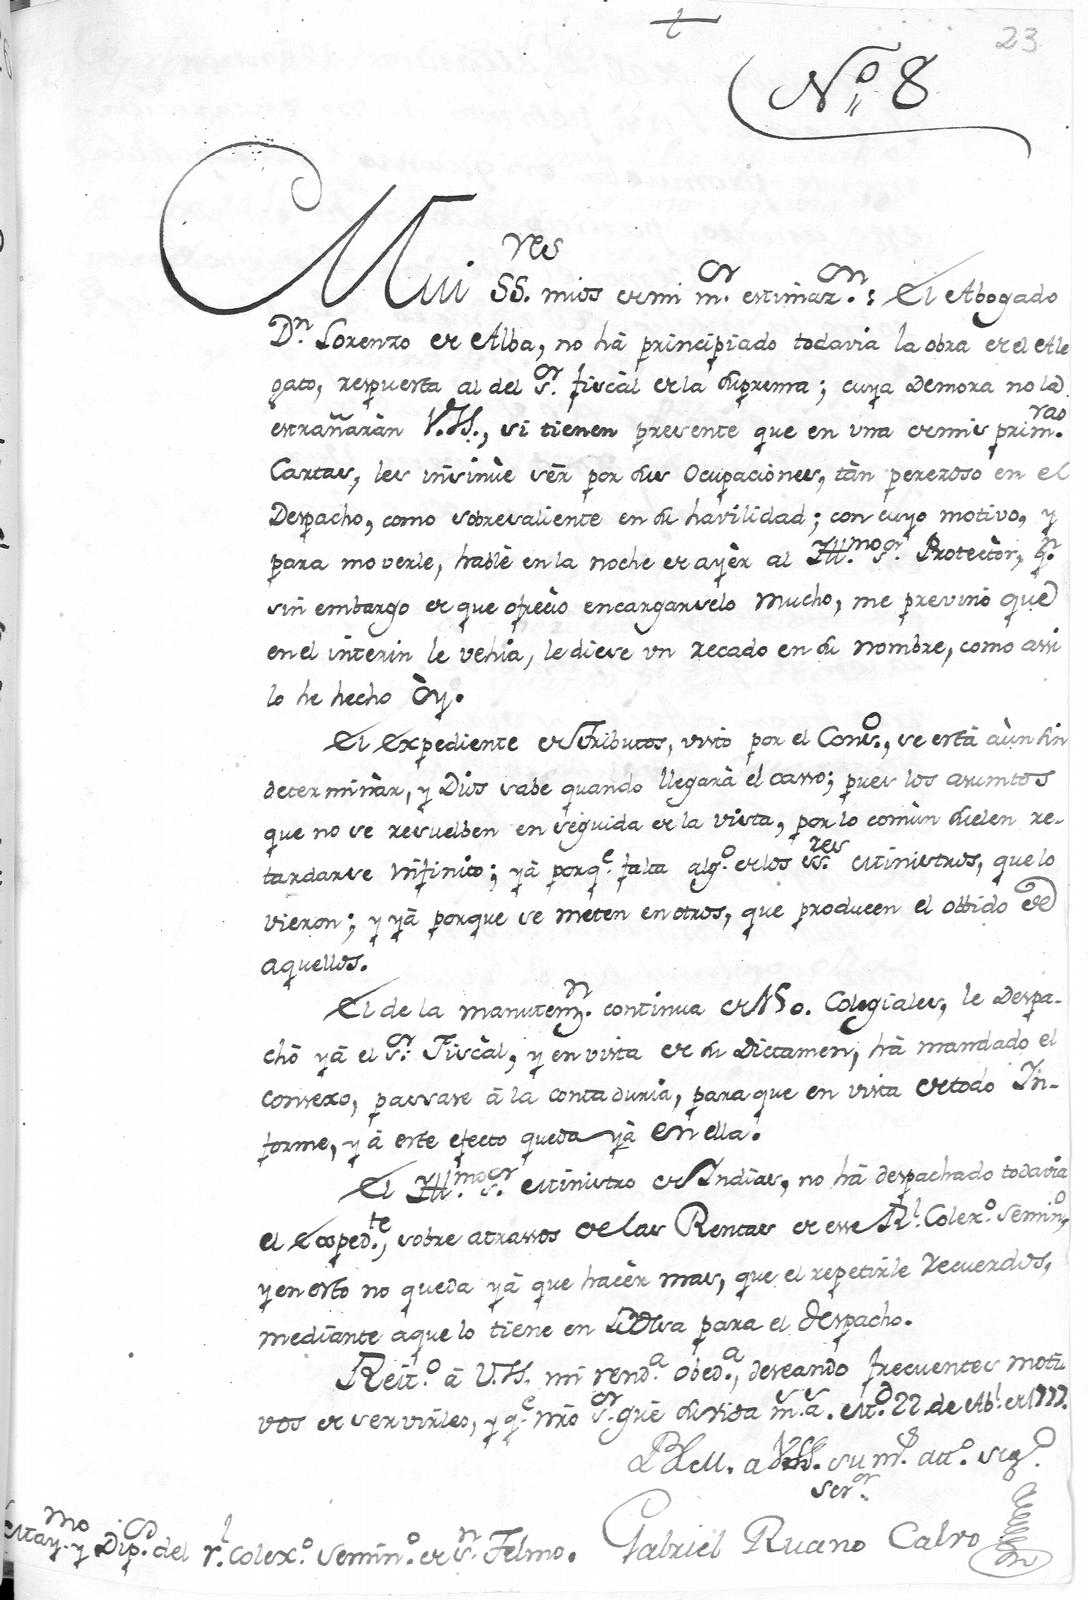 23
Nº 8
Mui SS.res mios de mi m.or estimaz.on: El Abogado
D.n Lorenzo de Alba, no hà principiado todavia la obra de el Ale
gato, respuesta al del S.or fiscàl de la Suprema; cuya Demora no la
estrañaràn V.SS., si tienen presente que en una de mis prim.ras
Cartas, les insinùe sèr por sus Ocupaciònes, tàn perezoso en el
Despacho, como sobresaliente en su havilidad; con cuyo motivo, y
para moverle, hablè en la noche de ayèr al Ill.mo S.or Protectòr, q.n
sin embargo de que ofreciò encargarselo mucho, me previnò que
en el interin le vehia, le diese un recado en su nombre, como assi
lo he hecho òy.
El Expediente de Tributos, visto por el Cons.o, se està aùn sin
determinàr, y Dios sabe quando llegarà el casso; pues los asumtos
que no se resuelben en seguida de la vista, por lo comùn suelen re-
tardarse infinito; yà porq.e falta alg.o de los SS.res Ministros, que lo
vieron; y yà porque se meten en otros, que producen el olbido de
aquellos.
El de la manutenz.n continua de 150. Colegiales, le Despa-
chò yà el S.or Fiscàl, y en vista de su Dictamen, hà mandado el
Consexo, passase à la contaduria, para que en vista de todo In-
forme, y à este efecto queda yà en ella.
El Ill.mo S.or Ministro de Indias, no hà despachado todavia
el Exped.te, sobre atrassos de las Rentas de esse R.l Colex.o Semin.o,
y en esto no queda yà que hacèr mas, que el repetirle recuerdos,
mediante aque lo tiene en su Bolsa para el despacho.
Reit.o à V.SS. mi rend.a obed.a, deseando frecuentes moti
vos de servirles, y q.e nr̃o S.or gũe su vida m.s a.s. Md.d 22 de Ab.l de 1777.
BLM. a V.SS. su m.s att.o seg.o
ser.or
Gabriel Ruano Calvo
May.mo y Dip.os del r.l colex.o semin.o de S.n Telmo.